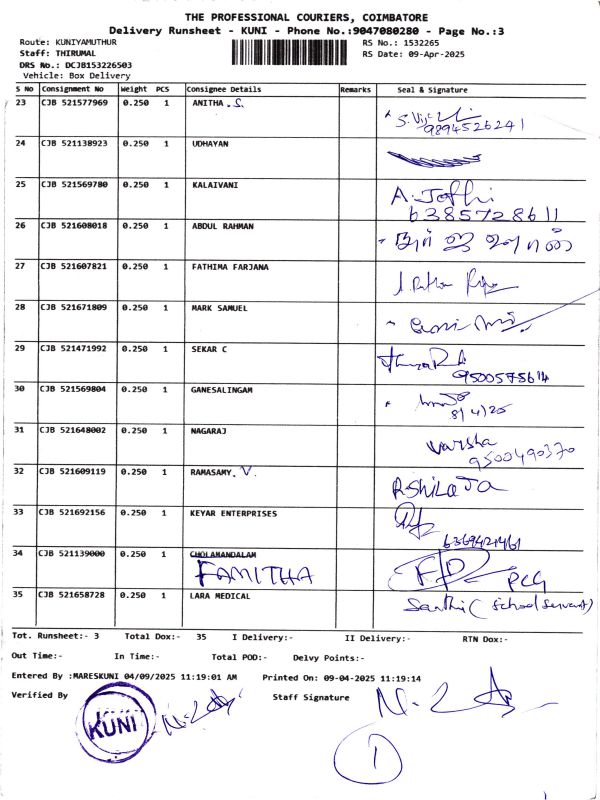 THE PROFESSIONAL COURIERS, COIMBATORE
Delivery Runsheet - KUNI - Phone No.:9047080280 - Page No.:3
Route: KUNIYAMUTHUR RS No.: 1532265
Staff: THIRUMAL RS Date: 09-Apr-2025
DRS No.: DCJB153226503
Vehicle: Box Delivery
S No Consignment No Weight PCS Consignee Details Remarks Seal & Signature
23 CJB 521577969 0.250 1 ANITHA .S.
9894526241
24 CJB 521138923 0.250 1 UDHAYAN
25 CJB 521569780 0.250 1 KALAIVANI
6385728611
26 CJB 521608018 0.250 1 ABDUL RAHMAN
27 CJB 521607821 0.250 1 FATHIMA FARJANA
28 CJB 521671809 0.250 1 MARK SAMUEL
29 CJB 521471992 0.250 1 SEKAR C
30 CJB 521569804 0.250 1 GANESALINGAM
8/4/25
31 CJB 521648002 0.250 1 NAGARAJ Varsha
9500490370
32 CJB 521609119 0.250 1 RAMASAMY. V. R.ShilaJa
33 CJB 521692156 0.250 1 KEYAR ENTERPRISES
34 CJB 521139000 0.250 1 CHOLAMANDALAM
FAMITHA
35 CJB 521658728 0.250 1 LARA MEDICAL Santhi (School Servant)
Tot. Runsheet:- 3 Total Dox:- 35 I Delivery:- II Delivery:- RTN Dox:-
Out Time:- In Time:- Total POD:- Delvy Points:-
Entered By :MARESKUNI 04/09/2025 11:19:01 AM Printed On: 09-04-2025 11:19:14
Verified By Staff Signature
KUNI
1